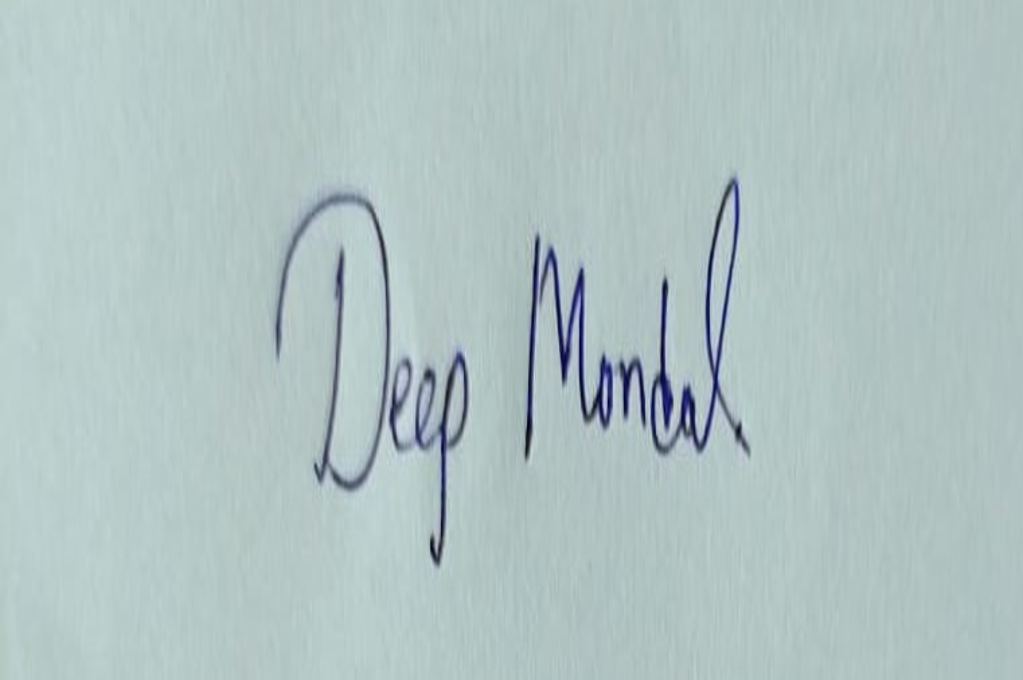 Deep Mondal